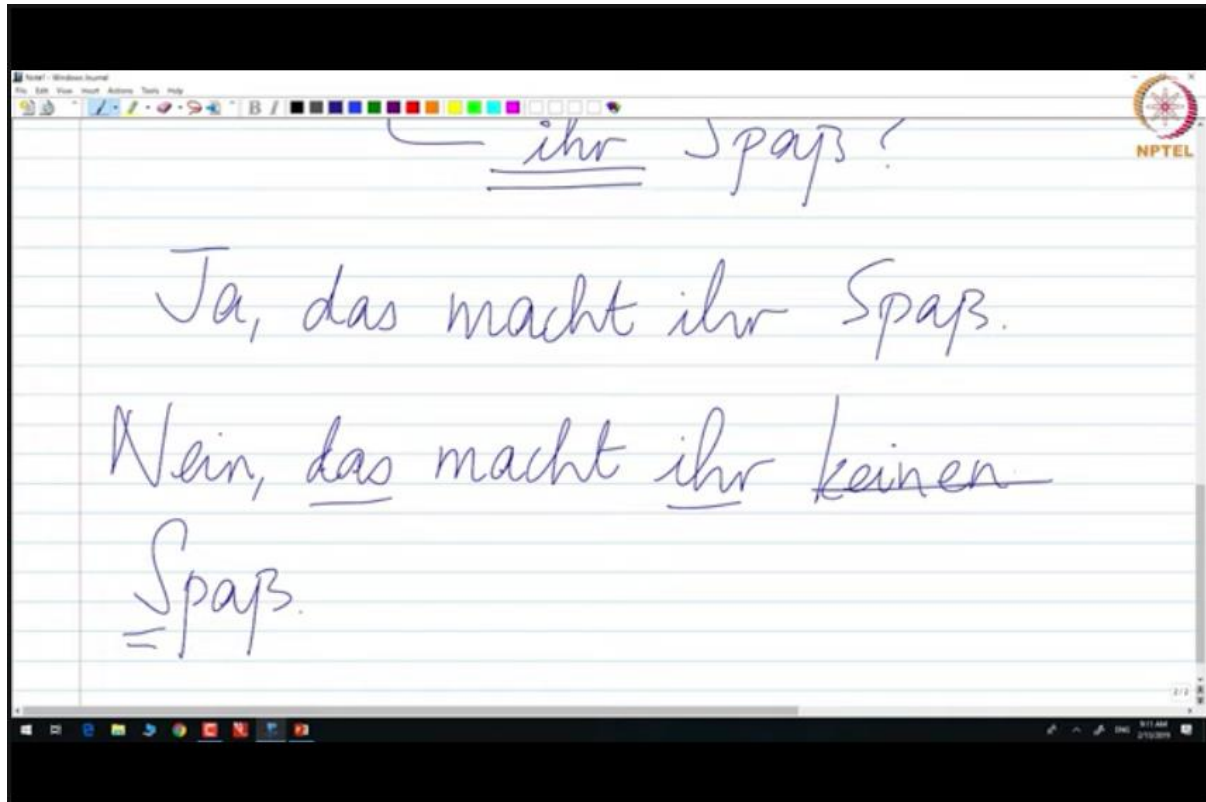 Note1 - Windows Journal
File Edit View Insert Actions Tools Help
B I
NPTEL
ihr Spaß?
Ja, das macht ihr Spaß.
Nein, das macht ihr keinen
Spaß.
2/2
ENG 9:11 AM
2/13/2019